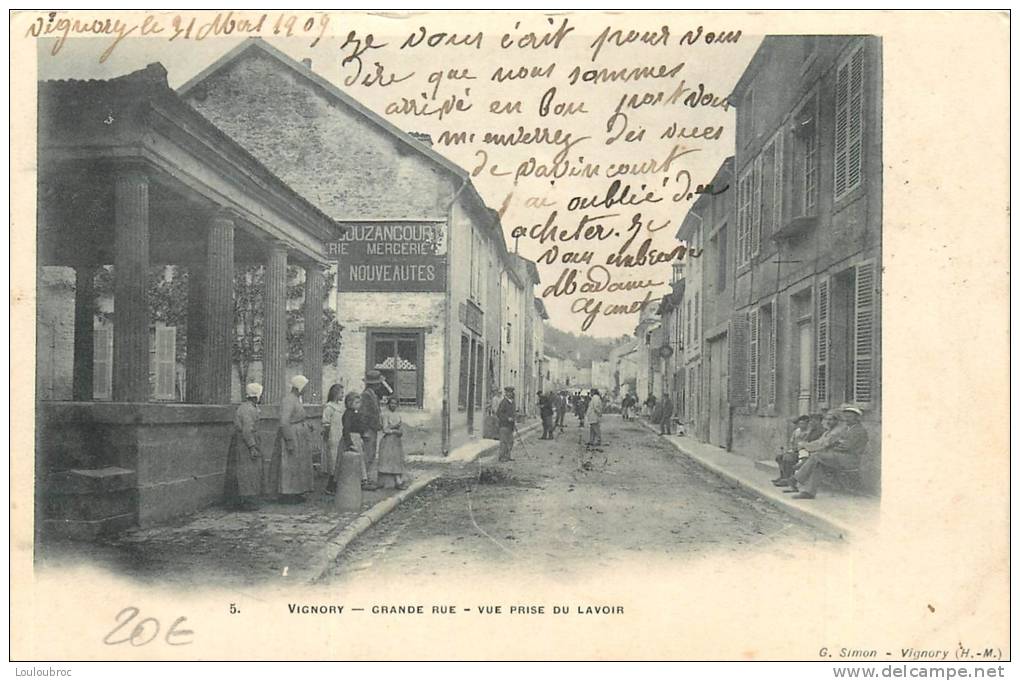 Vignory le 31 Mars 1909
Je vous écrit pour vous
dire que nous sommes
arrivé en bon port vous
m'enverrez des vues
de vavincourt
j'ai oublié d'en
acheter. Je
vous embrasse
Madame
GOUZANCOURT
RIE MERCERIE
NOUVEAUTES
5. VIGNORY — GRANDE RUE - VUE PRISE DU LAVOIR
20€
G. Simon - Vignory (H.-M.)
Louloubroc
www.delcampe.net